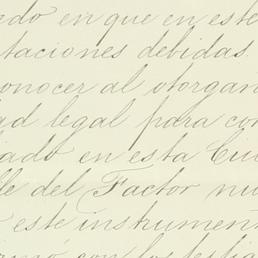 edo en que en este
taciones debidas.
onocer al otorgan
ad legal para con
iado en esta Ciu
lle del Factor nu
este instrumen
rmó con los testig